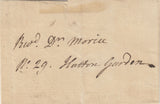 Revd. Dr. Morice
No. 29. Hatton Garden.